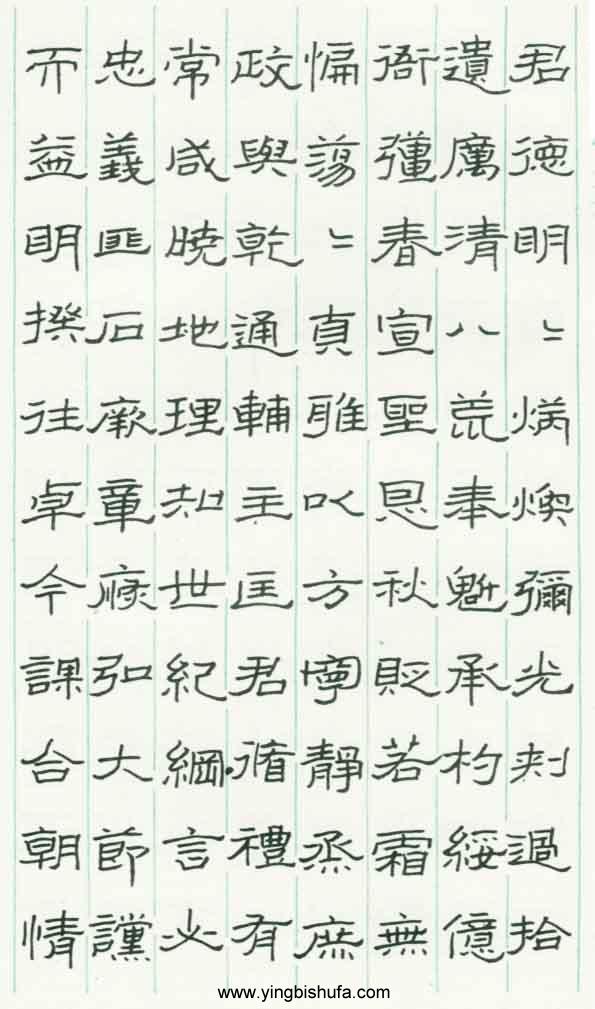 君德明〻炳煥彌光刺過拾
遺厲清八荒奉魁承杓綏億
衙彊春宣聖恩秋貶若霜無
偏蕩〻貞雅以方寧靜烝庶
政與乾通輔主匡君循禮有
常咸曉地理知世紀綱言必
忠義匪石厥章恢弘大節讜
而益明揆往卓今謀合朝情
www.yingbishufa.com